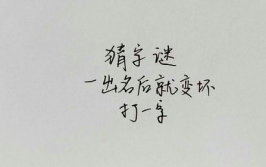 猜字谜
一出名后就变坏
打一字